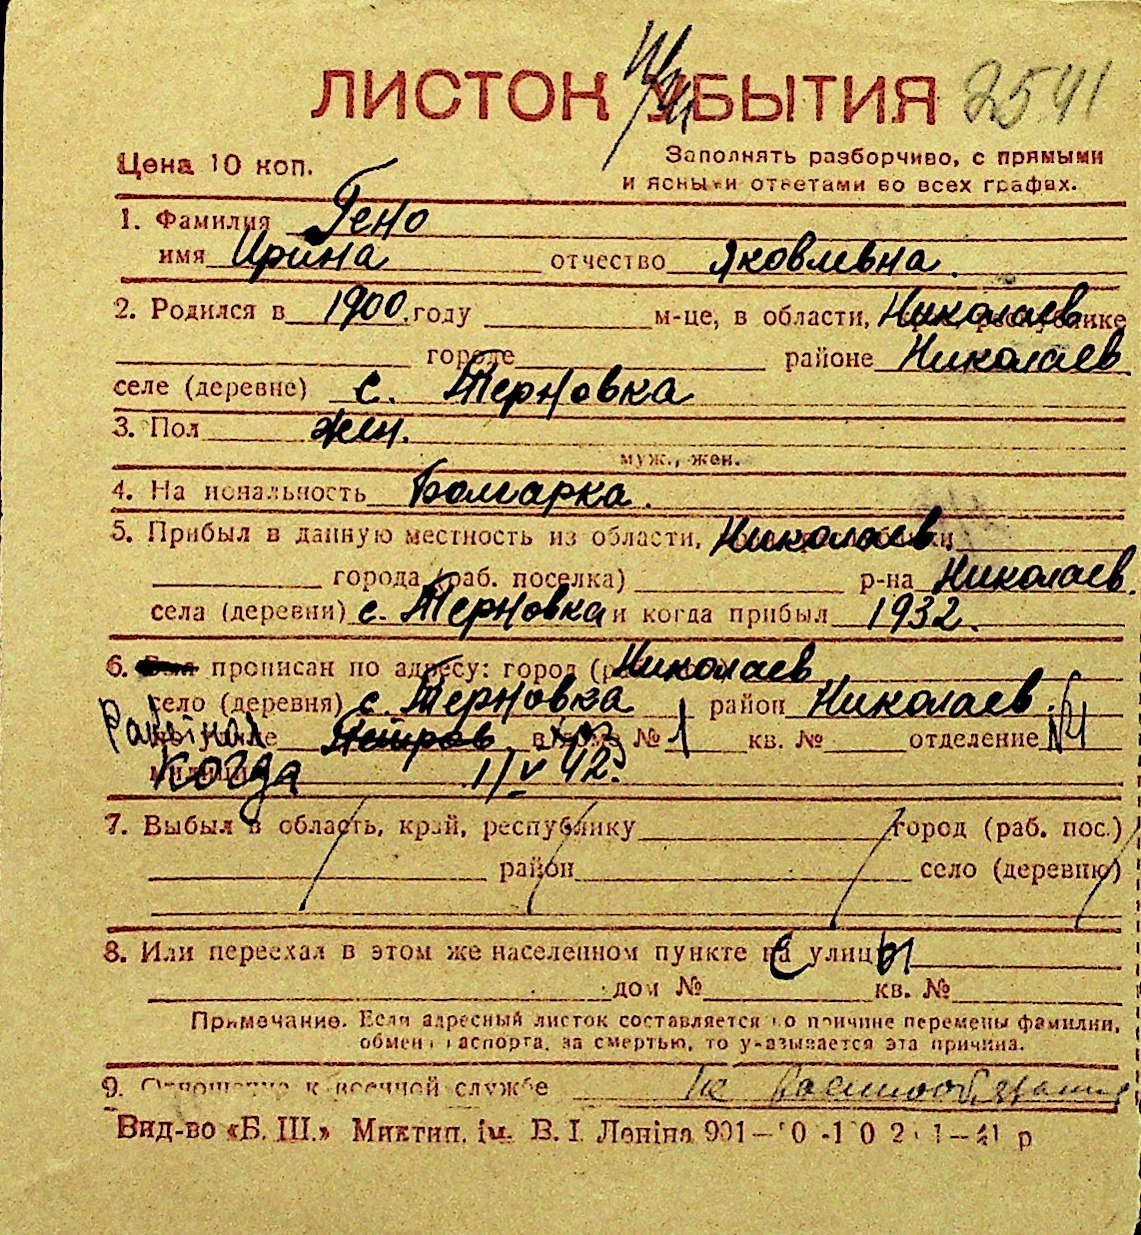 ЛИСТОК УБЫТИЯ 2541
Цена 10 коп.
Заполнять разборчиво, с прямыми
и ясными ответами во всех графах.
1. Фамилия Гено
имя Ирина отчество Яковлевна.
2. Родился в 1900. году м-це, в области, Николаев. республике
городе районе Николаев.
селе (деревне) с. Терновка
3. Пол жен.
муж., жен.
4. На иональность Болгарка.
5. Прибыл в данную местность из области, Николаев.
города (раб. поселка) р-на Николаев.
села (деревни) с. Терновка и когда прибыл 1932.
6. прописан по адресу: город Николаев
село (деревня) с. Терновка район Николаев.
в доме № 1 кв. № отделение №1
когда 1/V 42.
7. Выбыл в область, край, республику город (раб. пос.)
район село (деревню)
8. Или переехал в этом же населенном пункте с улицы
дом № кв. №
Примечание. Если адресный листок составляется по причине перемены фамилии,
обмен паспорта, за смертью, то указывается эта причина.
9. Отношение к военной службе не
Вид-во «Б. Ш.» Миктип. ім. В. І. Леніна